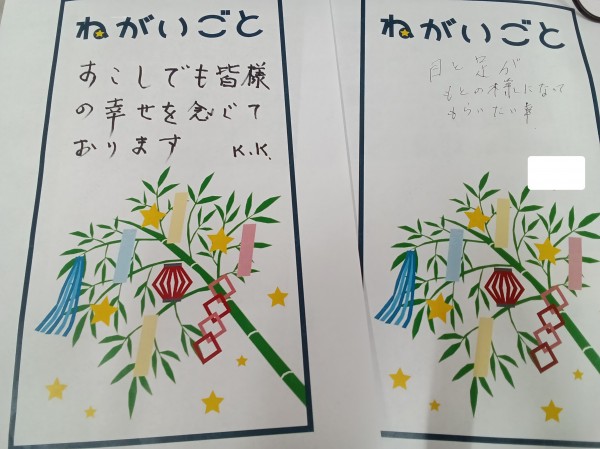 ねがいごと
すこしでも皆様
の幸せを念じて
おります K.K.
ねがいごと
目と足が
もとの様になって
もらいたい事